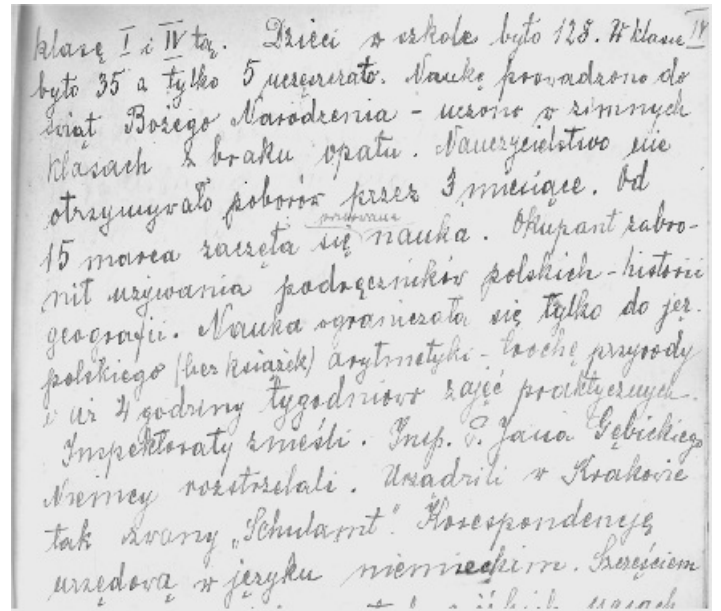 klasę I i IV tą. Dzieci w szkole było 128. W klasie IV
było 35 a tylko 5 uczęszczało. Naukę prowadzono do
świąt Bożego Narodzenia - uczono w zimnych
klasach z braku opału. Nauczycielstwo nie
otrzymywało poborów przez 3 miesiące. Od
15 marca zaczęła się nauka. Okupant zabro-
nił używania podręczników polskich - historii
geografii. Nauka ograniczała się tylko do jęz.
polskiego (bez książek) arytmetyki - trochę przyrody
i aż 4 godziny tygodniowo zajęć praktycznych.
Inspektoraty znieśli. Insp. P. Jana Gębickiego
Niemcy rozstrzelali. Urządzili w Krakowie
tak zwany „Schulamt". Korespondencję
urzędową w języku niemieckim. Szczęściem